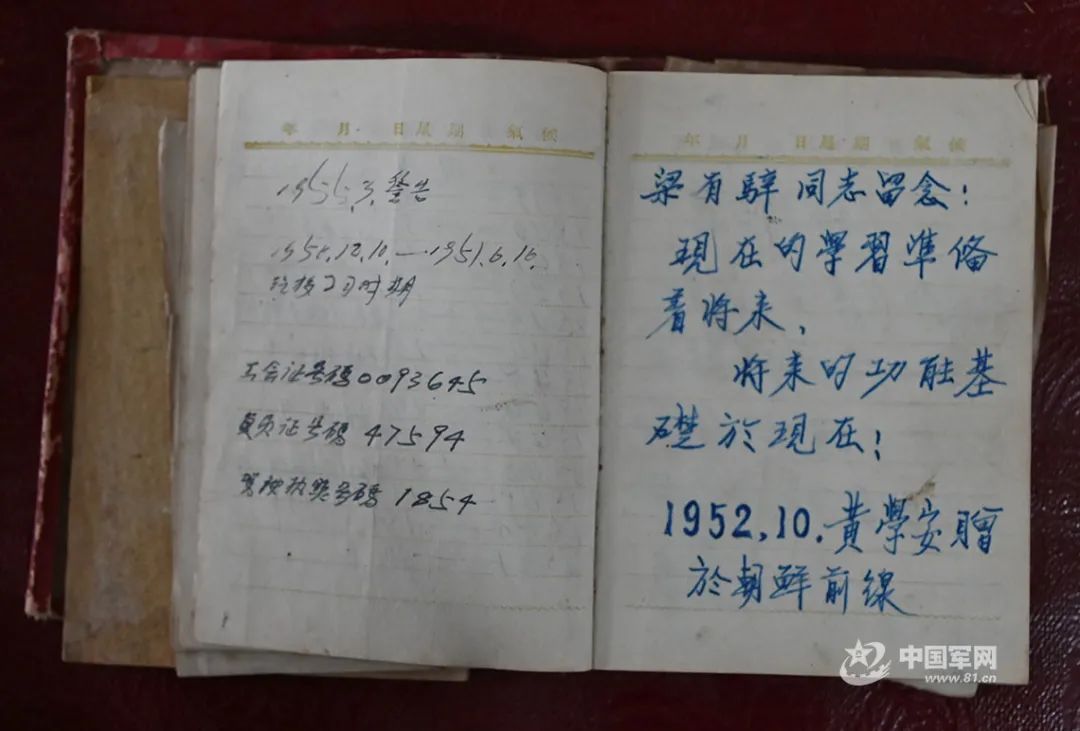 年 月 日星期 氣候
1955.3.警告
1950.12.10.—1951.6.16.
时期
工会证号码0093645
证号码 47594
驾驶执照号码 1854
年 月 日星期 氣候
梁有 同志留念：
現在的學習準俻
着将来，
将来的功能基
礎於現在！
1952.10.黄學安贈
於朝鮮前線
中国军网
www.81.cn